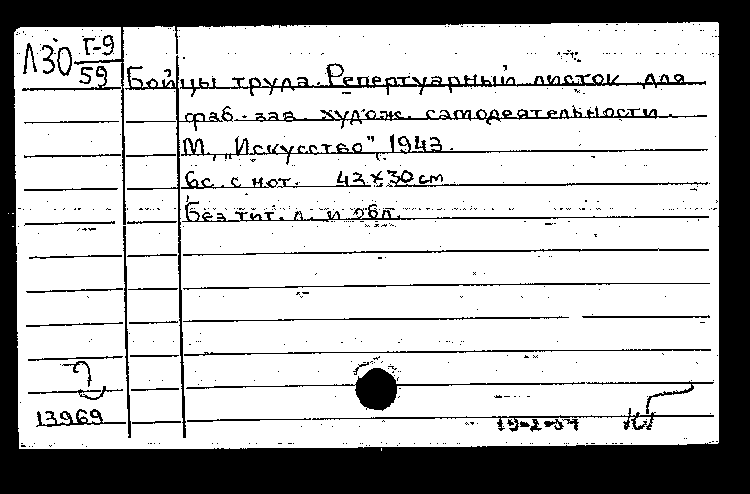 Л30 Г-9
59
Бойцы труда. Репертуарный листок для
фаб.-зав. худож. самодеятельности.
М., „Искусство", 1943.
6с. с нот. 42×30 см
Без тит. л. и обл.
13969
19-2-54